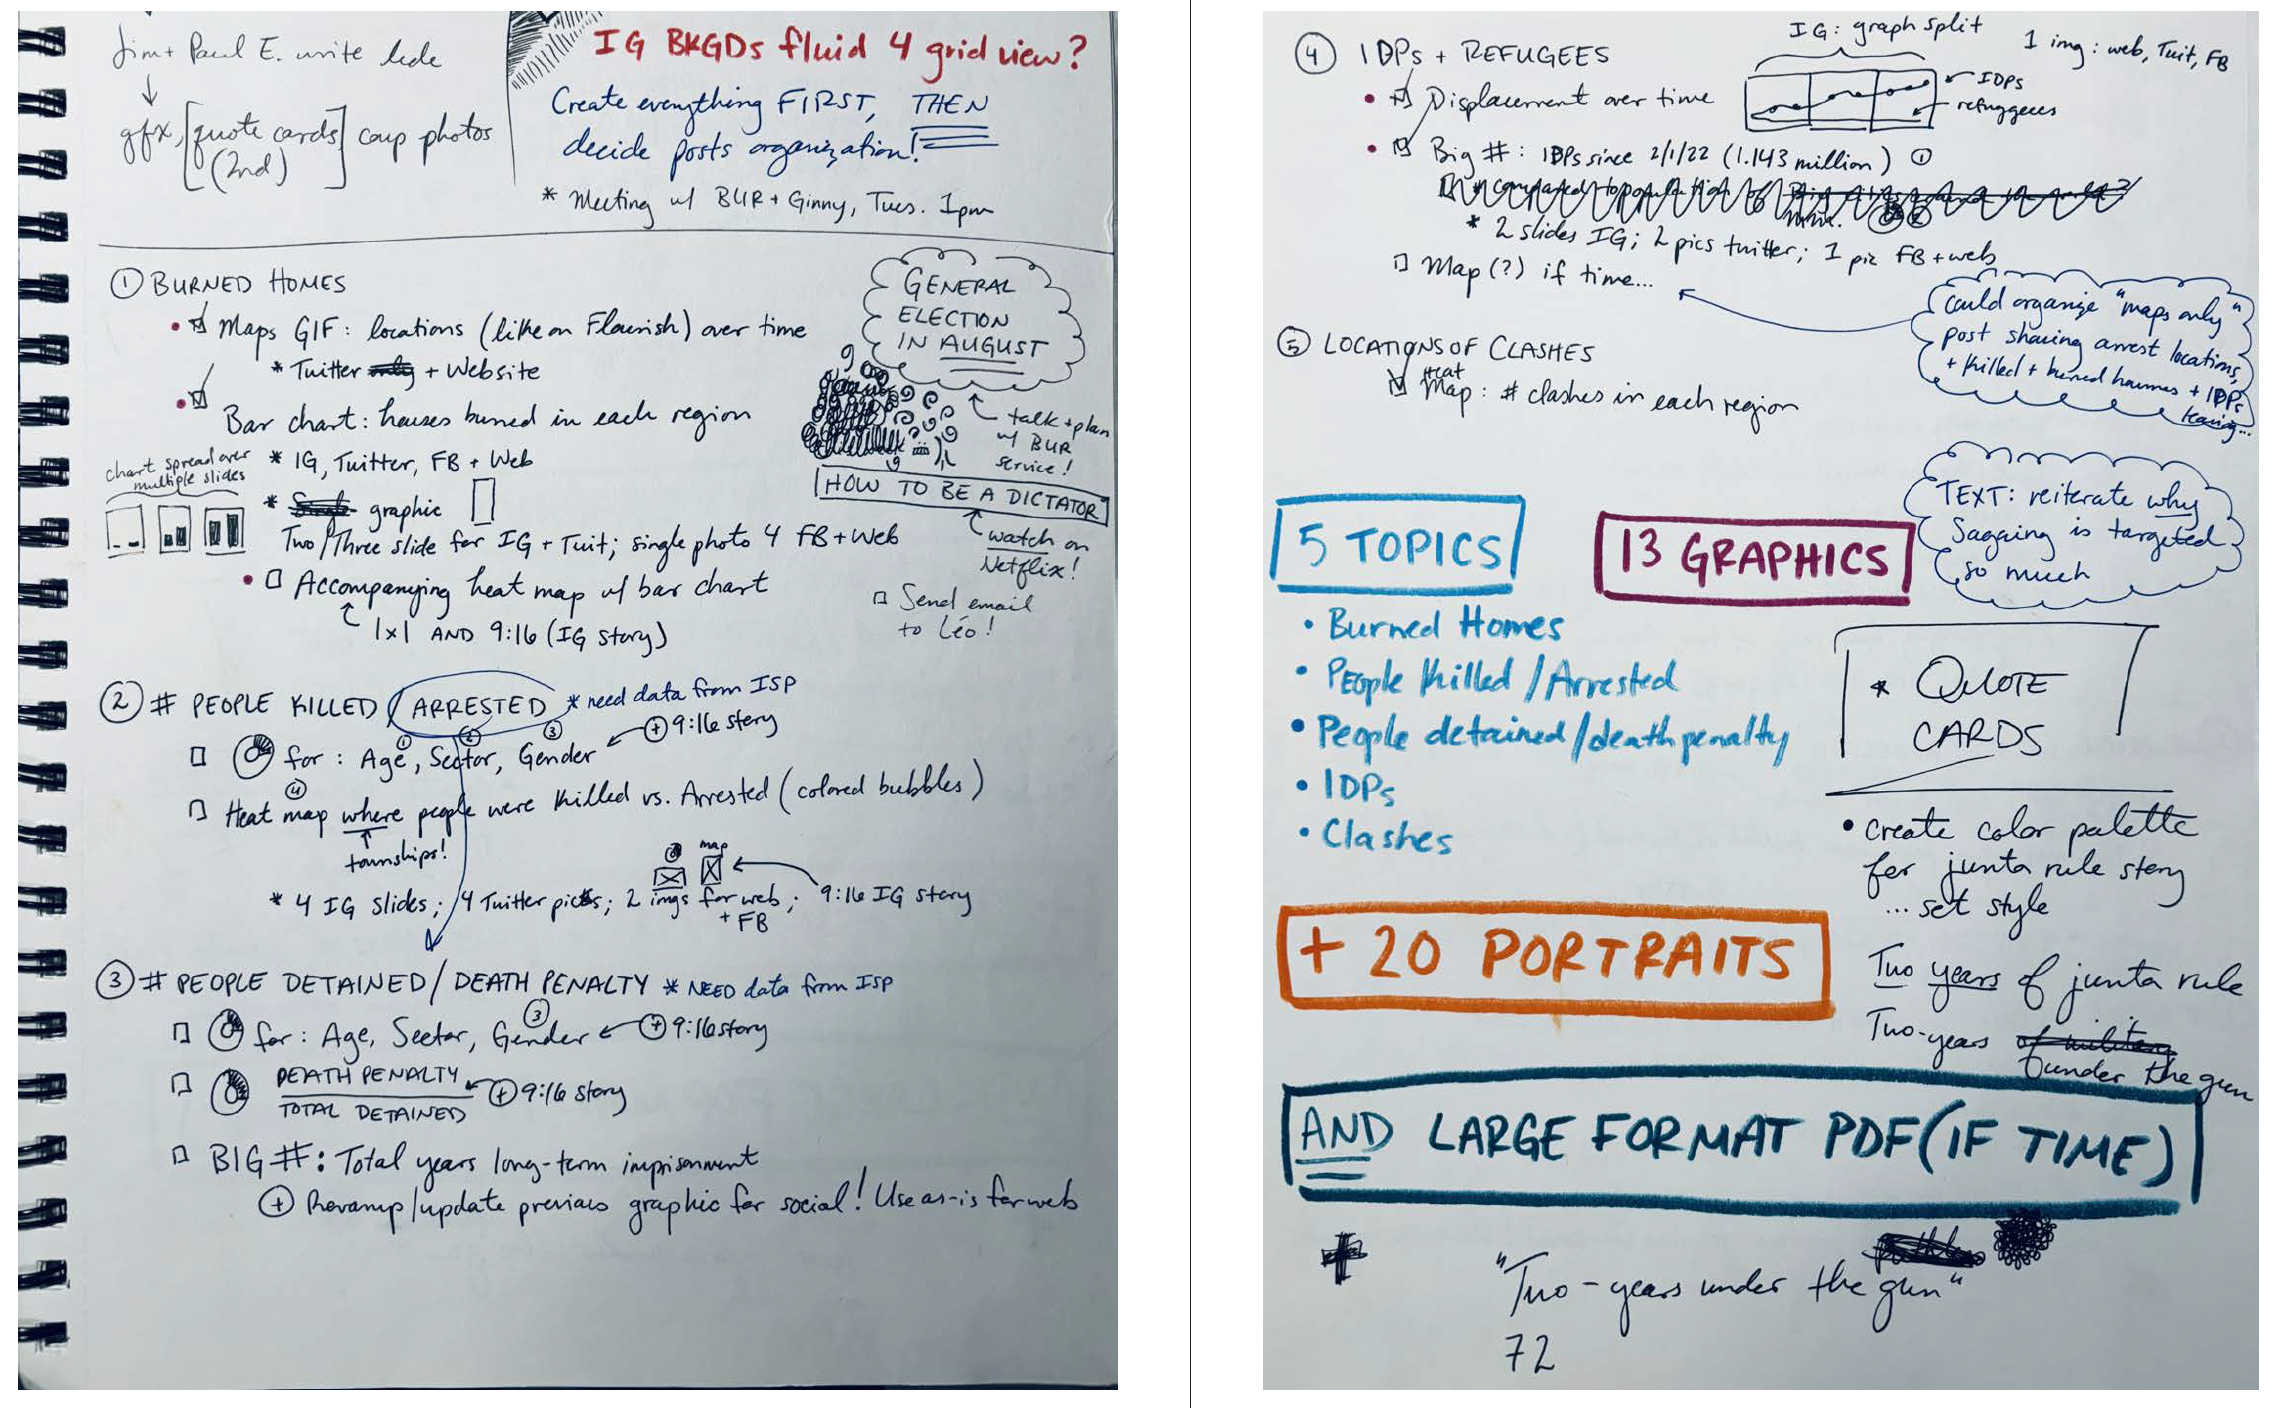 Jim + Paul E. write lede
gfx, [quote cards] coup photos
(2nd)
IG BKGDs fluid 4 grid view?
Create everything FIRST, THEN
decide posts organization!
* Meeting w/ BUR + Ginny, Tues. 1pm
① BURNED HOMES
Maps GIF: locations (like on Flourish) over time
* Twitter only + Website
Bar chart: houses burned in each region
* IG, Twitter, FB + Web
chart spread over
multiple slides
* Single graphic
Two/Three slide for IG + Twit; single photo 4 FB + Web
Accompanying heat map w/ bar chart
1x1 AND 9:16 (IG story)
GENERAL
ELECTION
IN AUGUST
talk + plan
w/ BUR
service!
HOW TO BE A DICTATOR
watch on
Netflix!
Send email
to Léo!
② # PEOPLE KILLED / ARRESTED * need data from ISP
for: Age, Sector, Gender + 9:16 story
① ② ③
④
Heat map where people were killed vs. Arrested (colored bubbles)
townships!
map
* 4 IG slides; 4 Twitter pics; 2 imgs for web; 9:16 IG story
+ FB
③ # PEOPLE DETAINED / DEATH PENALTY * NEED data from ISP
③
for: Age, Sector, Gender + 9:16 story
DEATH PENALTY + 9:16 story
TOTAL DETAINED
BIG #: Total years long-term imprisonment
+ Revamp/update previous graphic for social! Use as-is for web
④ IDPs + REFUGEES
IG: graph split
1 img: web, Twit, FB
IDPs
refuggees
• Displacement over time
• Big #: IDPs since 2/1/22 (1.143 million) ①
compared to population of
* 2 slides IG; 2 pics twitter; 1 pic FB + web
Map (?) if time...
could organize "maps only"
post sharing arrest locations,
+ killed + burned houmes + IDPs
leaving...
⑤ LOCATIONS OF CLASHES
Heat
Map: # clashes in each region
TEXT: reiterate why
Sagaing is targeted
so much
5 TOPICS
13 GRAPHICS
• Burned Homes
• People Killed / Arrested
• People detained/death penalty
• IDPs
• Clashes
* QUOTE
CARDS
• create color palette
for junta rule story
... set style
+ 20 PORTRAITS
Two years of junta rule
Two-years of military
under the gun
AND LARGE FORMAT PDF (IF TIME)
+
"Two-years under the gun"
72